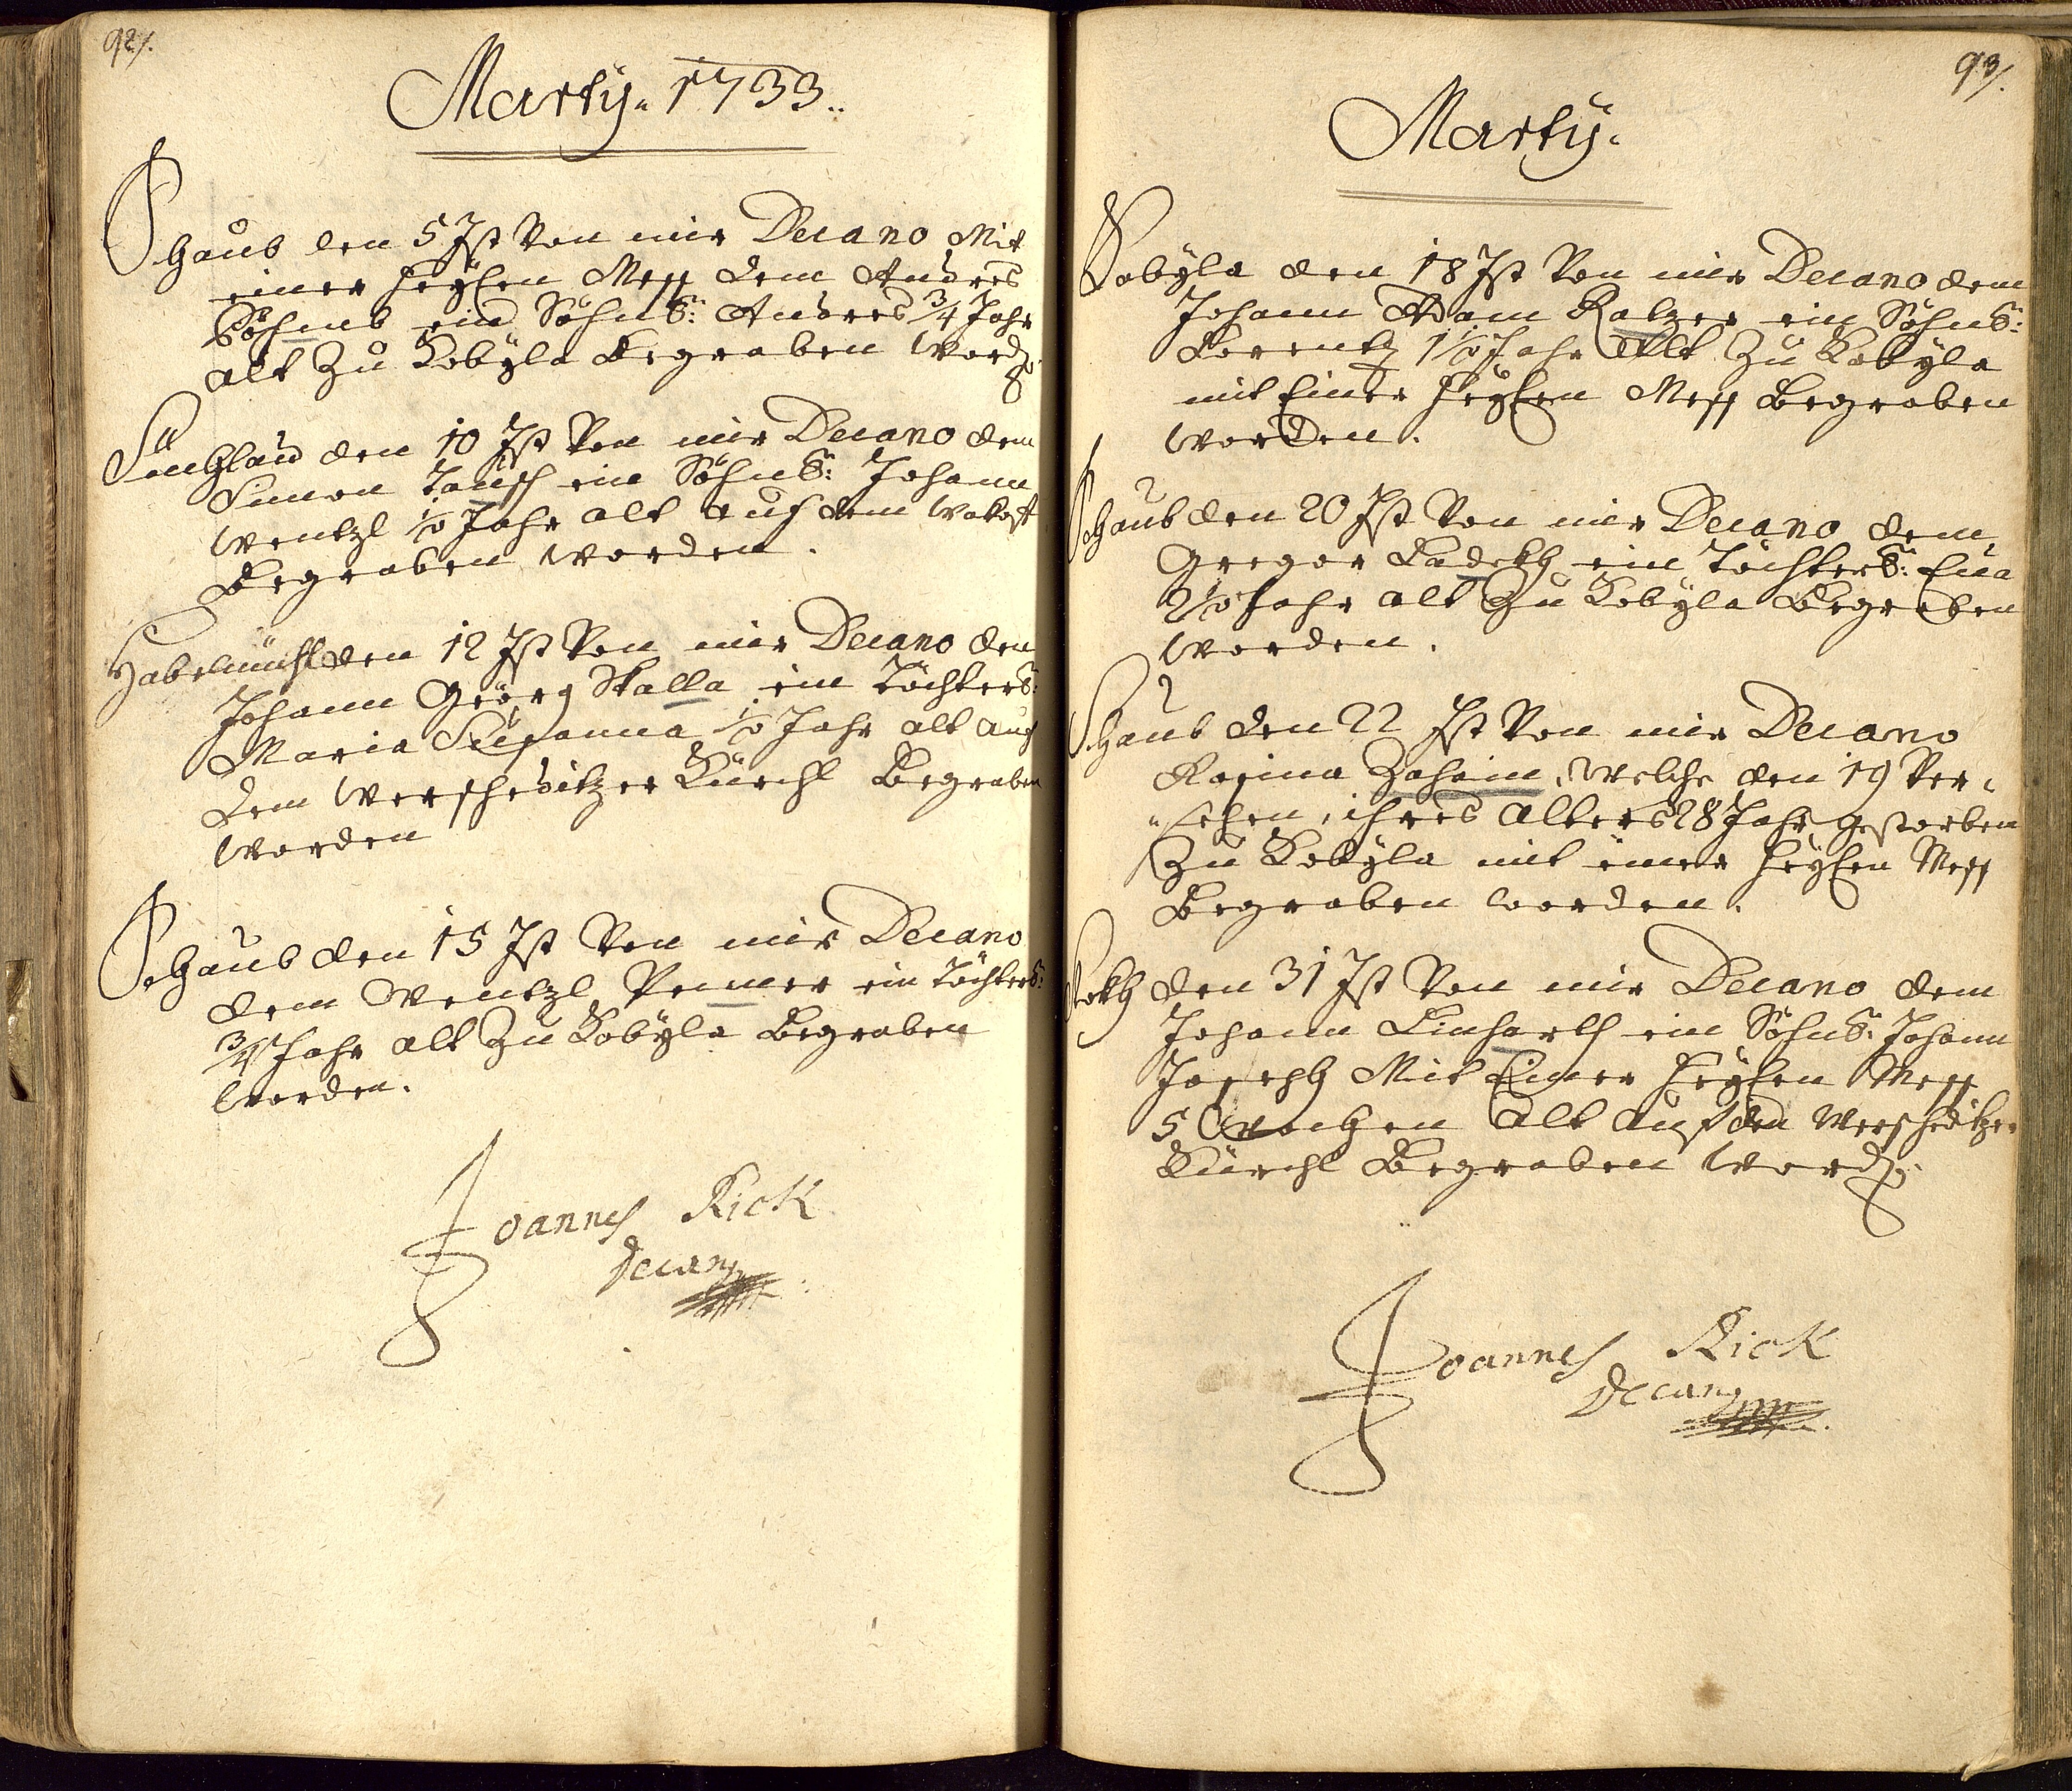 92/.
Martÿ. 1733..
Schaub den 5 Ist Von mir Decano Mit
einer heÿlen Mess dem Andres
ein Söhnl: Andres 3/4 Jahr
alt Zu Kobÿla Begraben Word:
den 10 Ist Von mir Decano dem
Simon Tausch ein Söhnl: Johann
Wentzl 1/2 Jahr alt auf dem
Begraben Worden.
den 12 Ist Von mir Decano den
Johann Geörg Skalla ein Töchterl:
Maria Susanna 1/2 Jahr alt auf
dem Werscheditzer Kürchl Begraben
Worden
Schaub den 15 Ist Von mir Decano
dem Wentzl ein Töchterl:
3/4 Jahr alt Zu Kobÿla Begraben
Worden.
Joannes Rick
Decanus
93/.
Martÿ.
Kobÿla den 18 Ist Von mir Decano dem
Johann Adam Ralzer ein Söhnl:
Lorentz 1 1/2 Jahr Alt Zu Kobÿla
mit Einer heÿlen Mess Begraben
Worden.
Schaub den 20 Ist Von mir Decano dem
Gregor ein Töchterl: Eua
2 1/2 Jahr alt Zu Kobÿla Begraben
Worden.
Schaub den 22 Ist Von mir Decano
Rosina Zahnin, Welche den 19 Ver-
-sehen, ihres Alters 28 Jahr gestorben
Zu Kobÿla mit einer heÿlen Mess
Begraben worden.
den 31 Ist Von mir Decano dem
Johann Linharth ein Söhnl: Johann
Joseph Mit Einer heÿlen Mess
5 Wochen Alt Auf den Werscheditzer
Kürchl Begraben Word:
Joannes Rick
Decanus